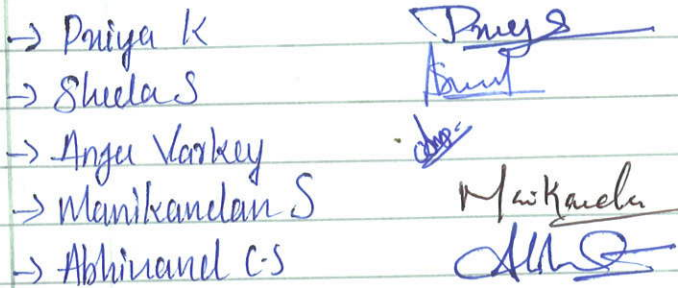 → Priya K
→ Sheela S
→ Angu Varkey
→ Manikandan S Manikanda
→ Abhinand C.S